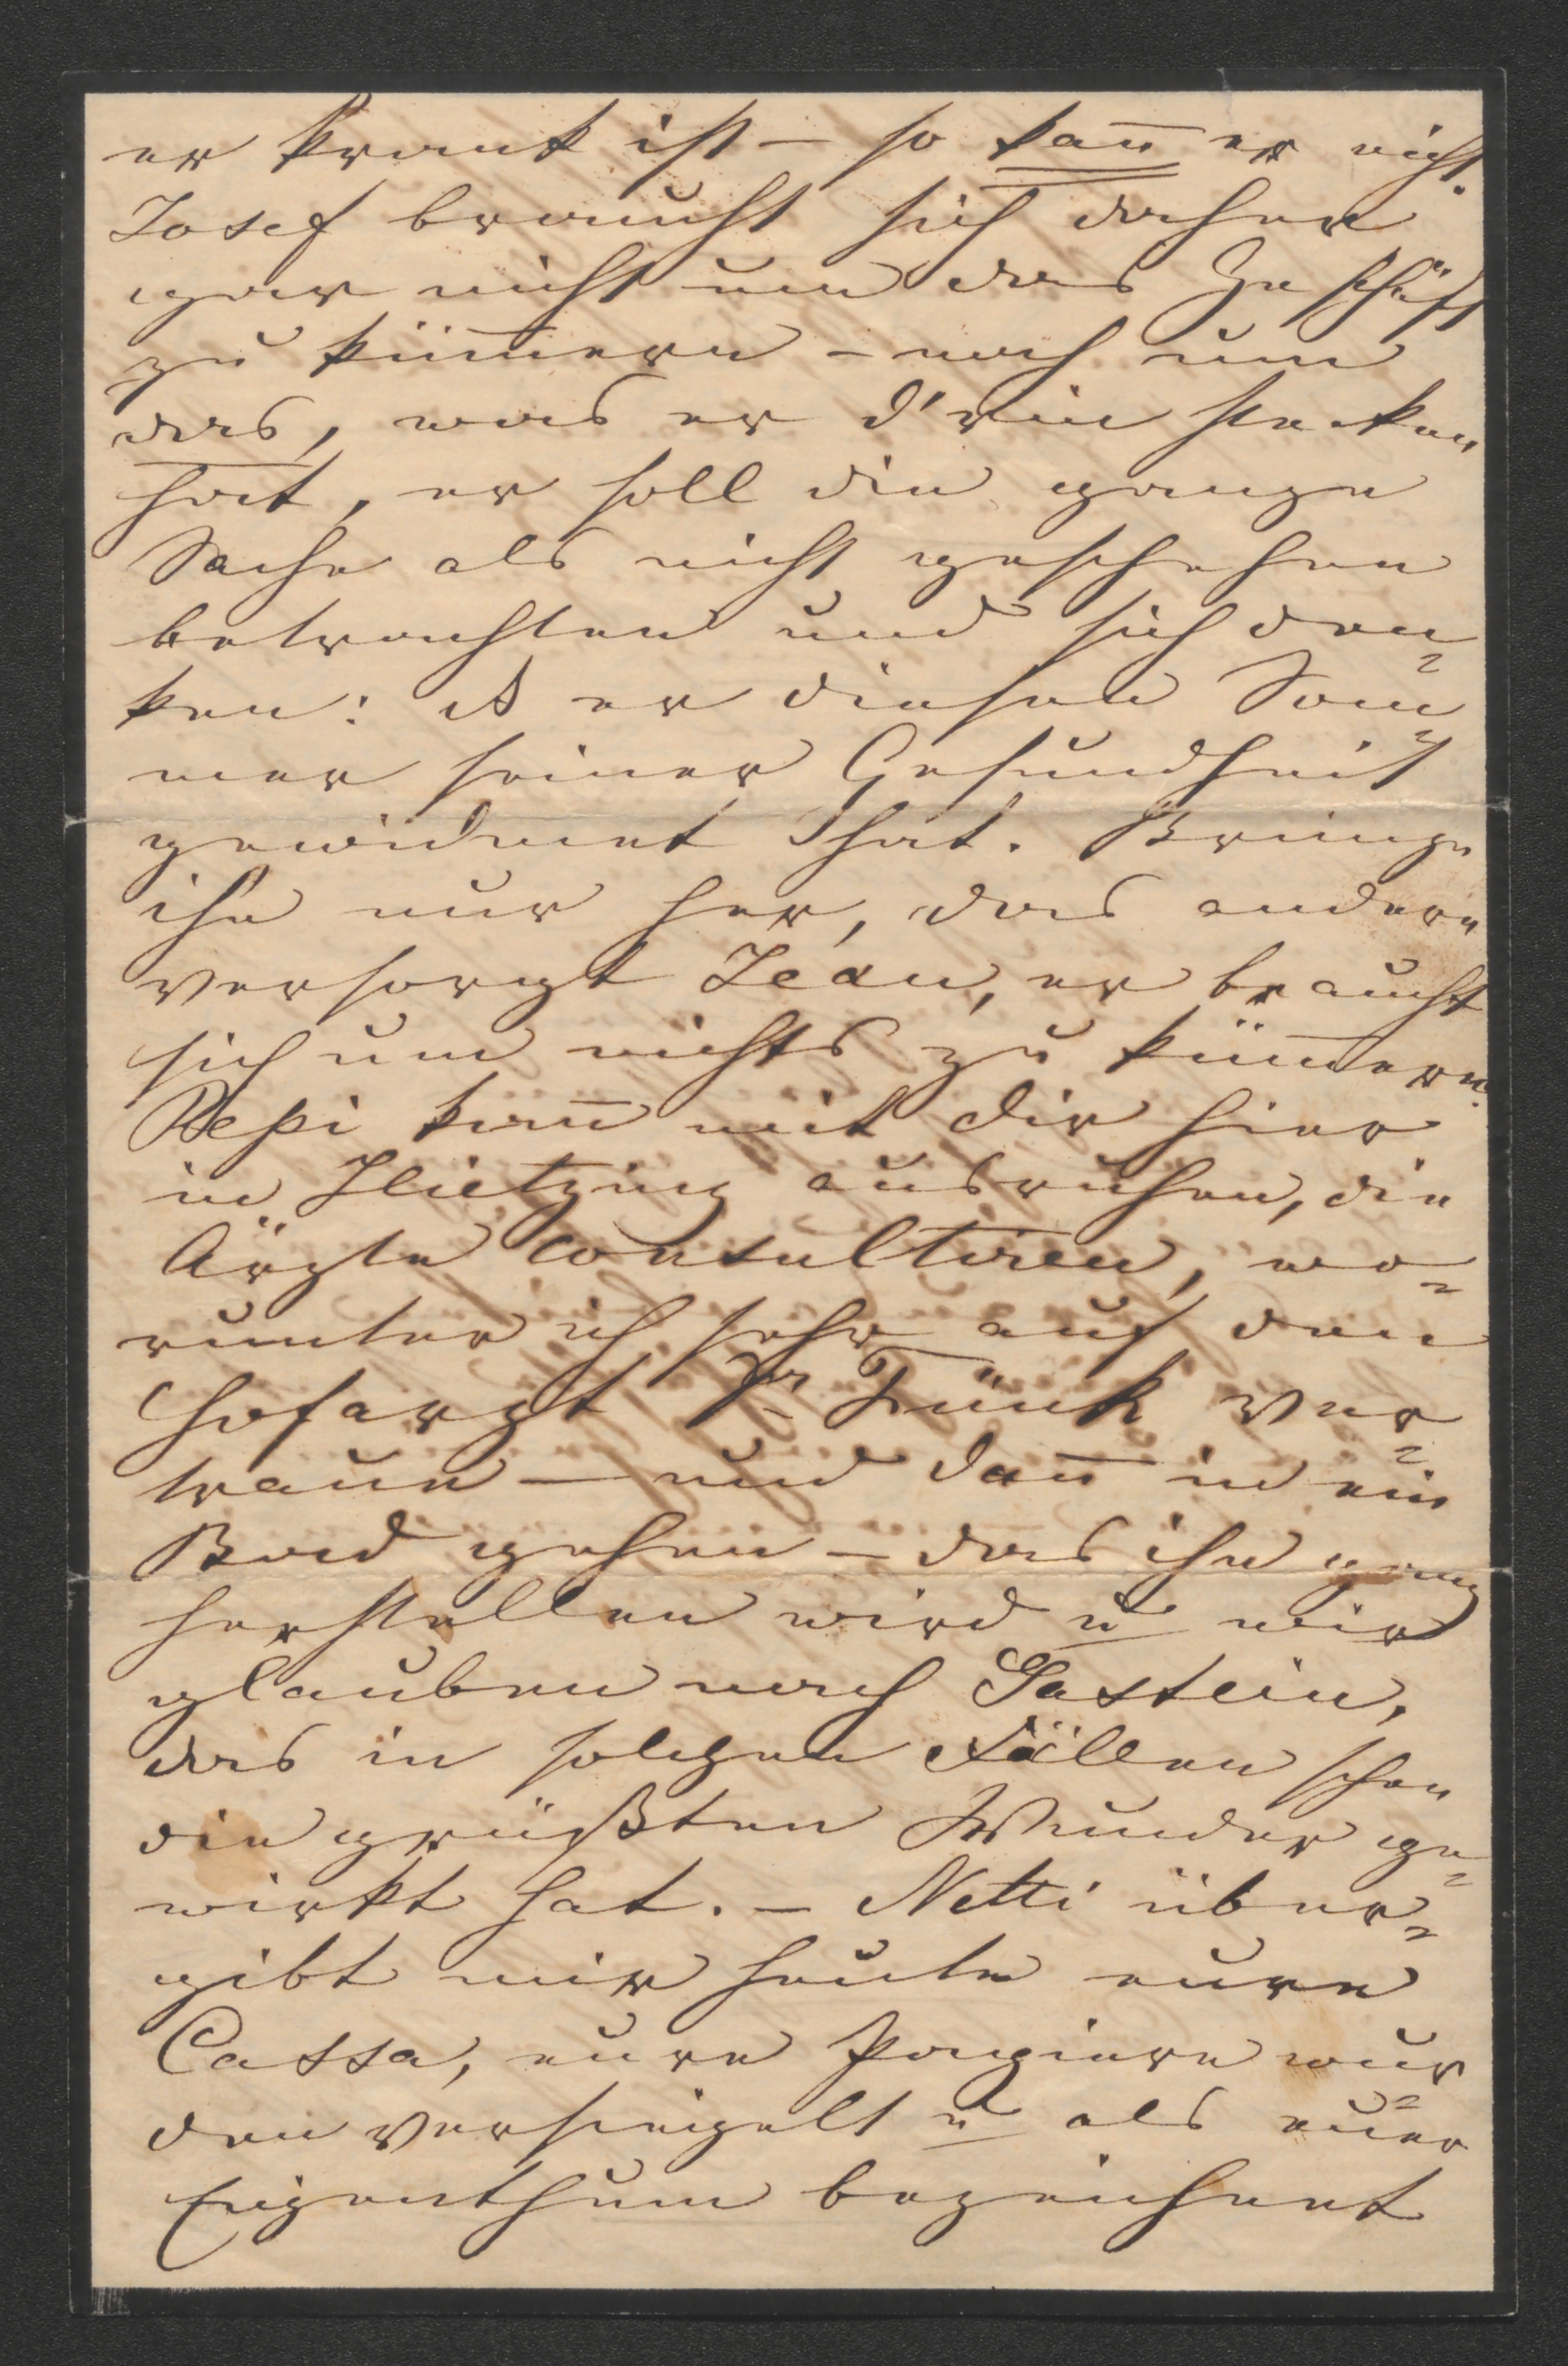 er krank ist – so kan̅ er nicht.
Josef braucht sich daher
gar nicht um das Geschäft
zu küm̅ern – noch um
das, was er d'rin stecken
hat, er soll die ganze
Sache als nicht geschehen
betrachten und sich den=
ken: daß er diesen Som=
mer seiner Gesundheit
gewidmet hat. Bringe
ihn nur her, das andere
versorgt Jean, er braucht
sich um nichts zu küm̅ern.
Pepi kan̅ mit dir hier
in Hietzing ausruhen, die
Ärzte consultiren, wo=
runter ich sehr auf den
Hofarzt Dr Fünk ver=
traue – und dan̅ in ein
Bad gehen – das ihn ganz
herstellen wird u̅ wir
glauben nach Gastein,
das in solchen Fällen schon
die größten Wunder ge=
wirkt hat. – Netti über=
gibt mir heute eure
Cassa, eure Papiere wur=
den versiegelt u̅ als euer
Eigenthum bezeichnet